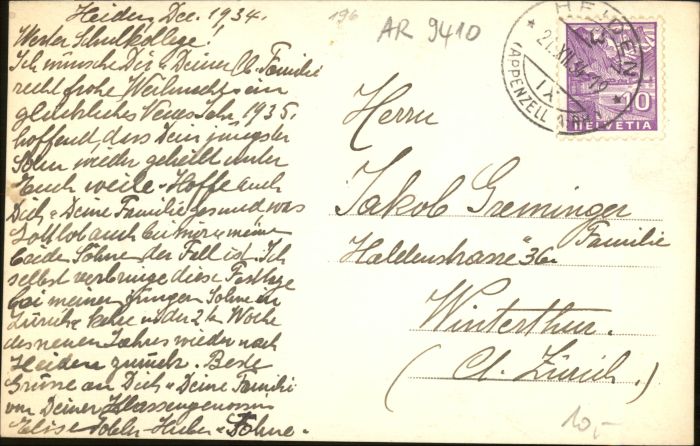 Heiden, Dez. 1934.
Werter Schulkollege!
Ich wünsche Dir u. Deiner lb. Familie
recht frohe Weihnachten, ein
glückliches Neues Jahr, 1935,
hoffend, dass Dein jüngster
Sohn wieder geheilt unter
Euch weile. Hoffe auch
Dich u. Deine Familie gesund was
Gottlob auch bei mir u. meine
beide Söhne der Fall ist. Ich
selbst verbringe diese Festtage
bei meinem jüngern Sohne in
Zürich u. kehre in der 2t. Woche
des neuen Jahres wieder nach
Heiden zurück. Beste
Grüsse an Dich u. Deine Familie
von Deiner Klassengenossin
Elise Tobler-Huber u. Söhne.
196
AR 9410
HEIDEN
21.XII.34-19
IX
(APPENZELL
10
HELVETIA
Herrn
Jakob Greminger
Familie
Haldenstrasse "36a
Winterthur.
(Ct. Zürich.)
10,-